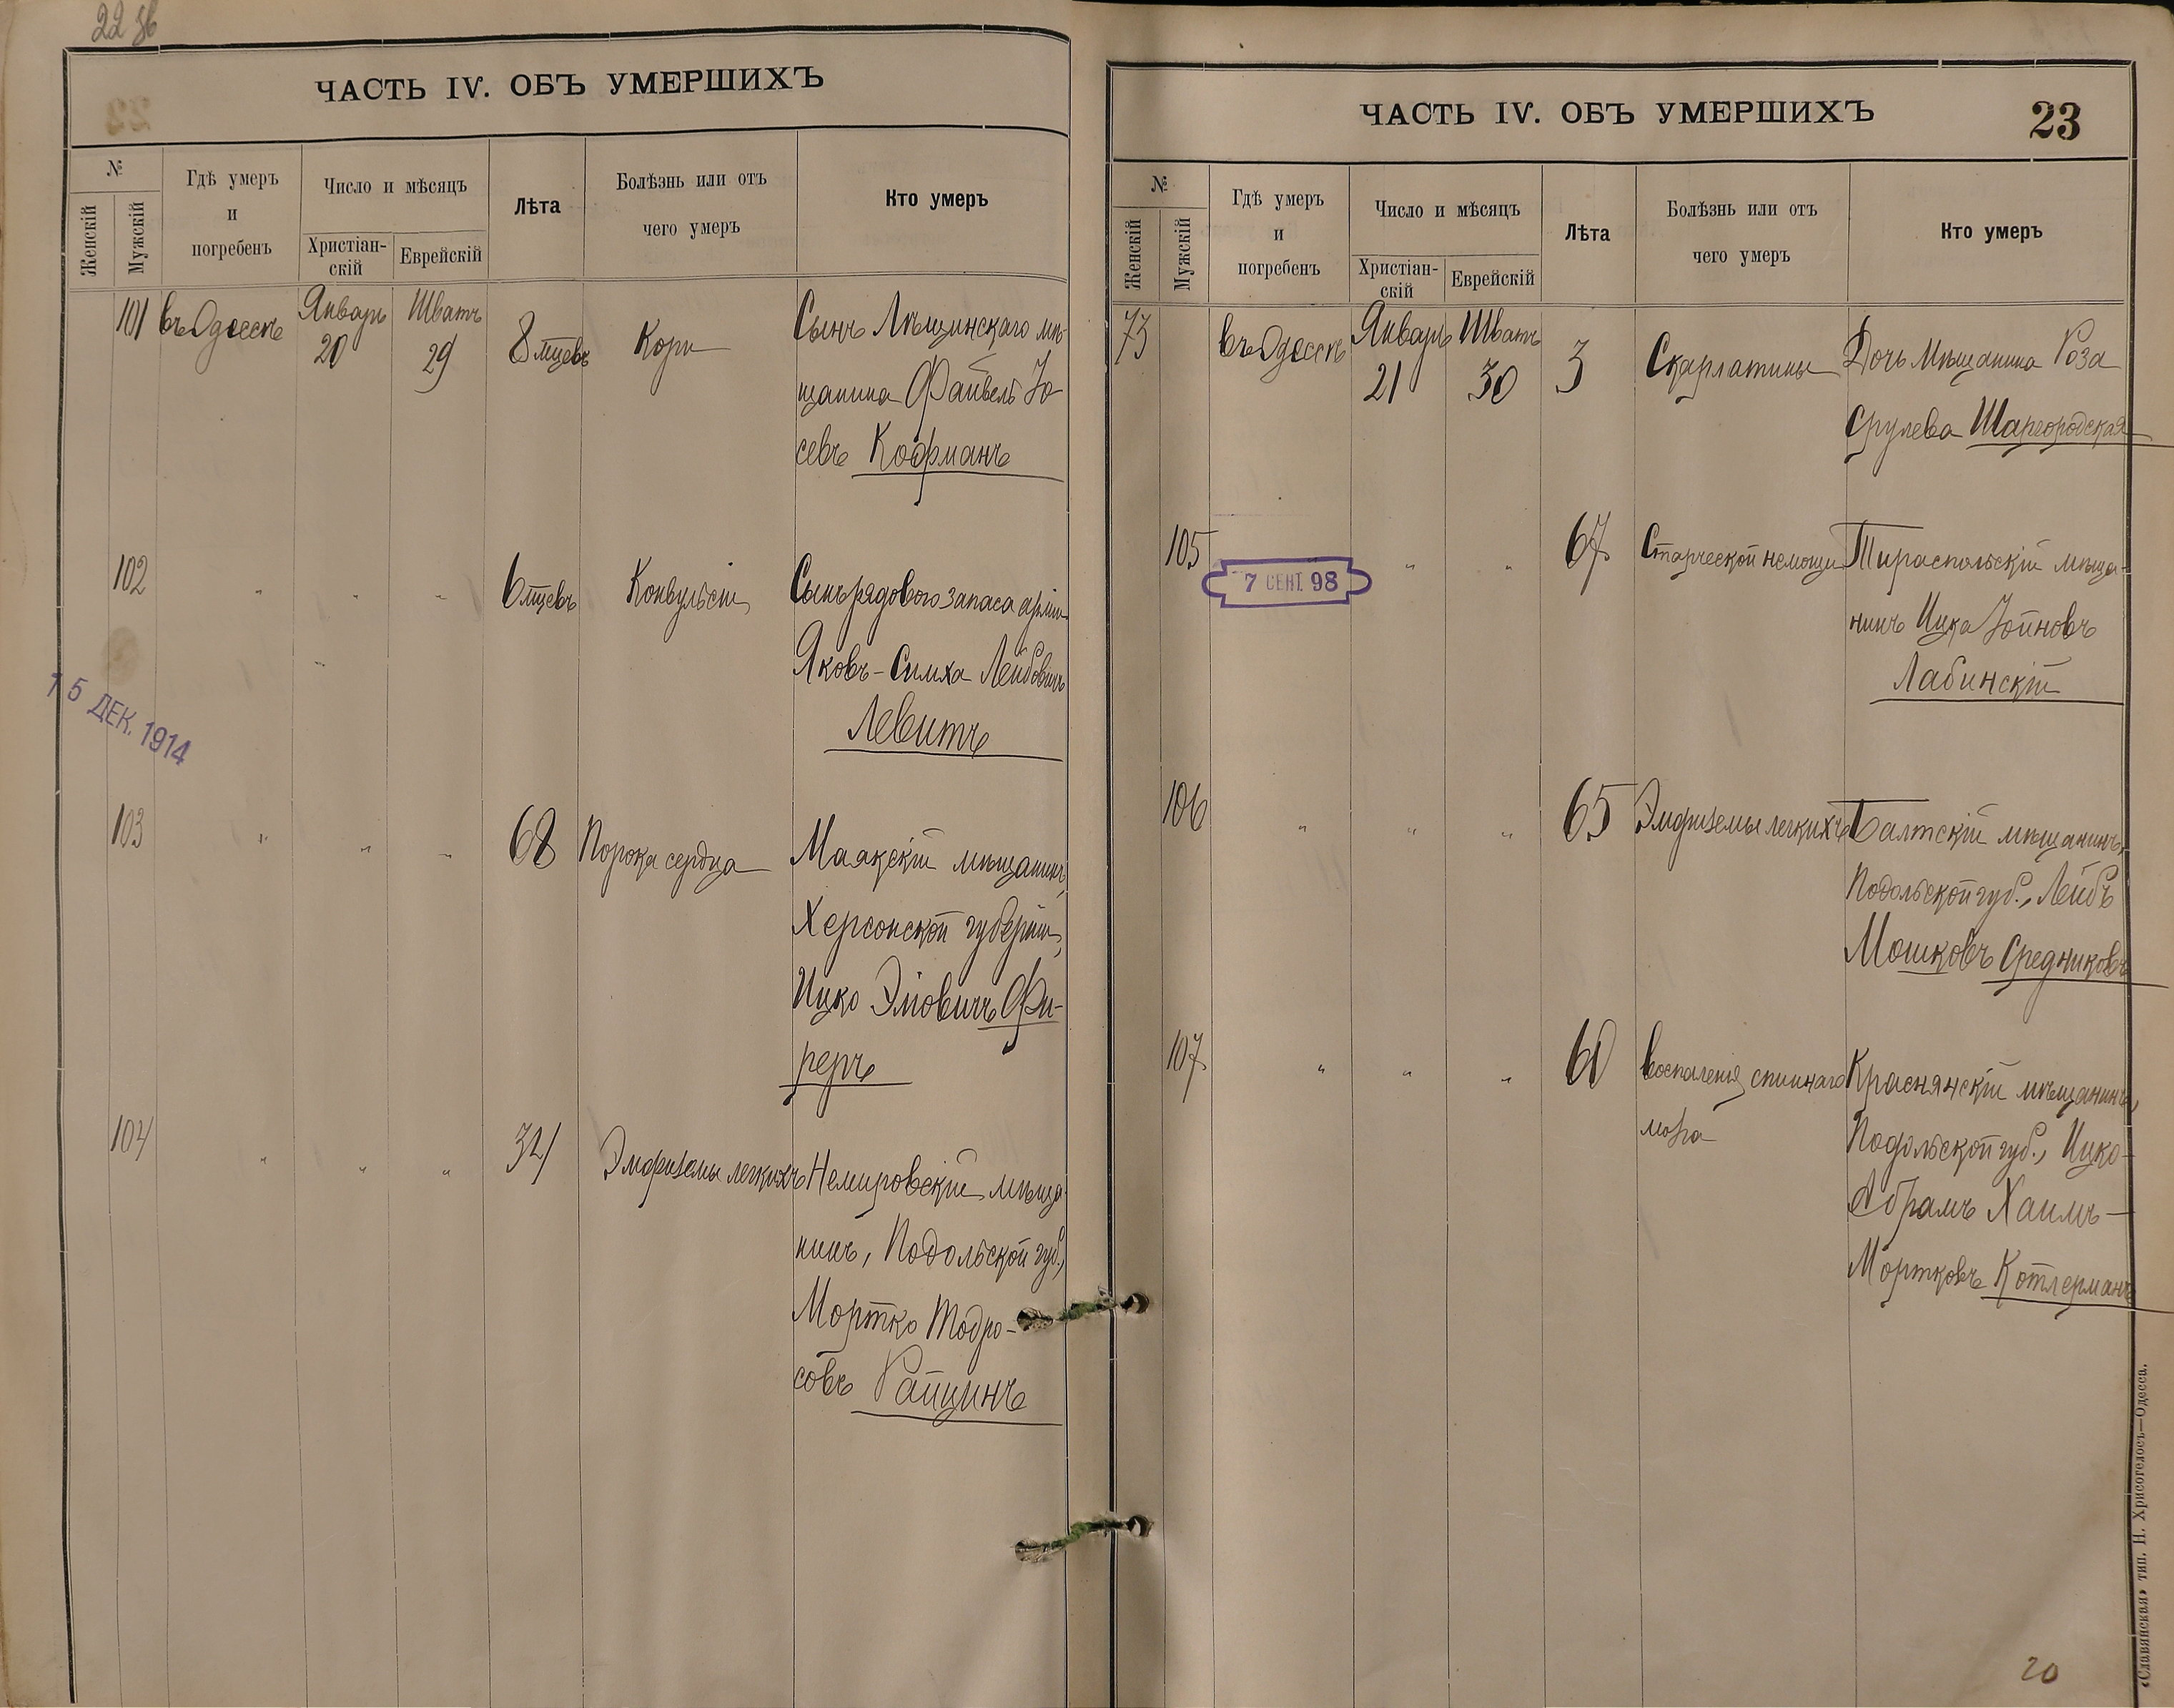 22 об
ЧАСТЬ IV. ОБЪ УМЕРШИХЪ
№
Женскій
Мужскій
Гдѣ умеръ
и
погребенъ
Число и мѣсяцъ
Христіан-
скій
Еврейскій
Лѣта
Болѣзнь или отъ
чего умеръ
Кто умеръ
101 въ Одессѣ Январь 20 Шватъ 29 8 мцевъ Кори Сынъ Лѣщинскаго мѣ-
щанина Файвель Іо-
севъ Кофманъ
102 " " " 6 мцевъ Конвульсіи Сынъ рядового запаса арміи
Яковъ-Симха Лейбовичъ
Левитъ
15 ДЕК. 1914
103 " " " 68 Порока сердца Маякскій мѣщанинъ,
Херсонской губерніи,
Ицко Эліовичъ Фи-
реръ
104 " " " 34 Эмфиземы легкихъ Немировскій мѣща-
нинъ, Подольской губ.,
Мортко Тодро-
совъ Райцинъ
ЧАСТЬ IV. ОБЪ УМЕРШИХЪ
23
№
Женскій
Мужскій
Гдѣ умеръ
и
погребенъ
Число и мѣсяцъ
Христіан-
скій
Еврейскій
Лѣта
Болѣзнь или отъ
чего умеръ
Кто умеръ
73 въ Одессѣ Январь 21 Шватъ 30 3 Скарлатины Дочь мѣщанина Роза
Срулева Шаргородская
105 " " " 67 Старческой немощи Тираспольскій мѣща-
7 СЕНТ. 98
нинъ Ицка Іойновъ
Лабинскій
106 " " " 65 Эмфиземы легкихъ Балтскій мѣщанинъ,
Подольской губ., Лейбъ
Мошковъ Средниковъ
107 " " " 60 Воспаленія спиннаго Краснянскій мѣщанинъ,
мозга Подольской губ., Ицко-
Абрамъ Хаимъ-
Мортковъ Котлерманъ
«Славянская» тип. Н. Хрисогелосъ—Одесса.
20